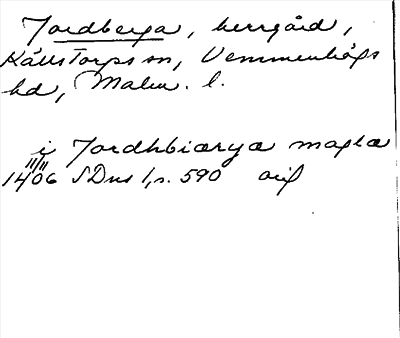 Jordberga, herrgård,
Källstorps sn, Vemmenhögs
hd, Malm. l.
i Jordhbiærya maglæ
11/11
1406 SDns 1, s. 590 orig